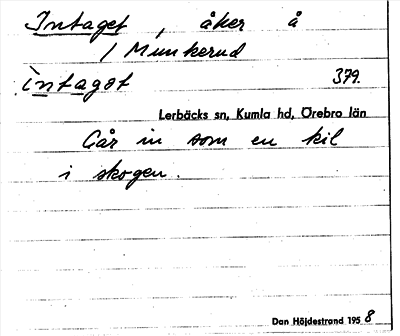 Intaget, åker å
1 Munkerud
ìntagət 379.
Lerbäcks sn, Kumla hd, Örebro län
Går in som en kil
i skogen.
Dan Höjdestrand 1958